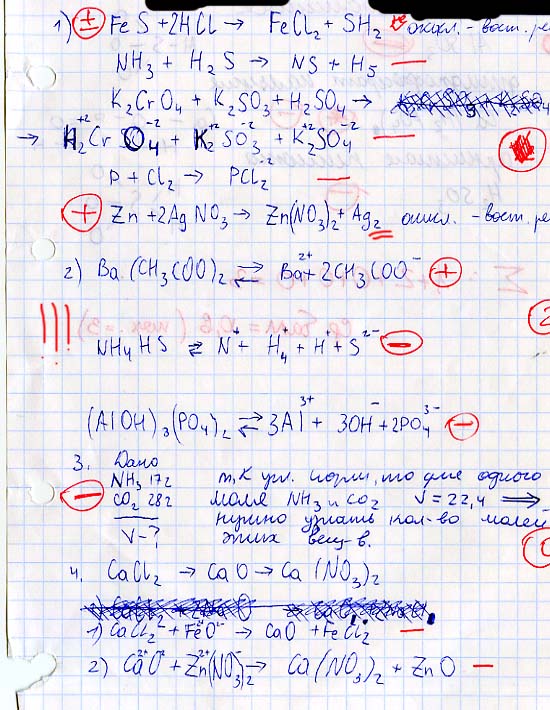 1) ± FeS + 2HCl → FeCl₂ + SH₂ окисл. - вост. ре
NH₃ + H₂S → NS + H₅ —
K₂CrO₄ + K₂SO₃ + H₂SO₄ →
→ H₂⁺²CrSO₄⁻² + K₂⁺²SO₃⁻² + K₂⁺²SO₄⁻² —
P + Cl₂ → PCl₂ —
+ Zn + 2AgNO₃ → Zn(NO₃)₂ + Ag₂ окисл. - вост. ре
2) Ba(CH₃COO)₂ ⇄ Ba²⁺ + 2CH₃COO⁻ +
!!! NH₄HS ⇄ N⁺ + H₄⁺ + H⁺ + S²⁻ —
(AlOH)₃(PO₄)₂ ⇄ 3Al³⁺ + 3OH⁻ + 2PO₄³⁻ —
3. Дано
NH₃ 17г т,к усл. норм, то для одного
— CO₂ 28г моля NH₃ и CO₂ V = 22,4 ⟹
V - ? нужно узнать кол-во молей
этих вещ-в.
4. CaCl₂ → CaO → Ca(NO₃)₂
1) CaCl₂ + FeO → CaO + FeCl₂ —
2) Ca²⁺O²⁻ + Zn²⁺(NO₃)₂⁻ → Ca(NO₃)₂ + ZnO —